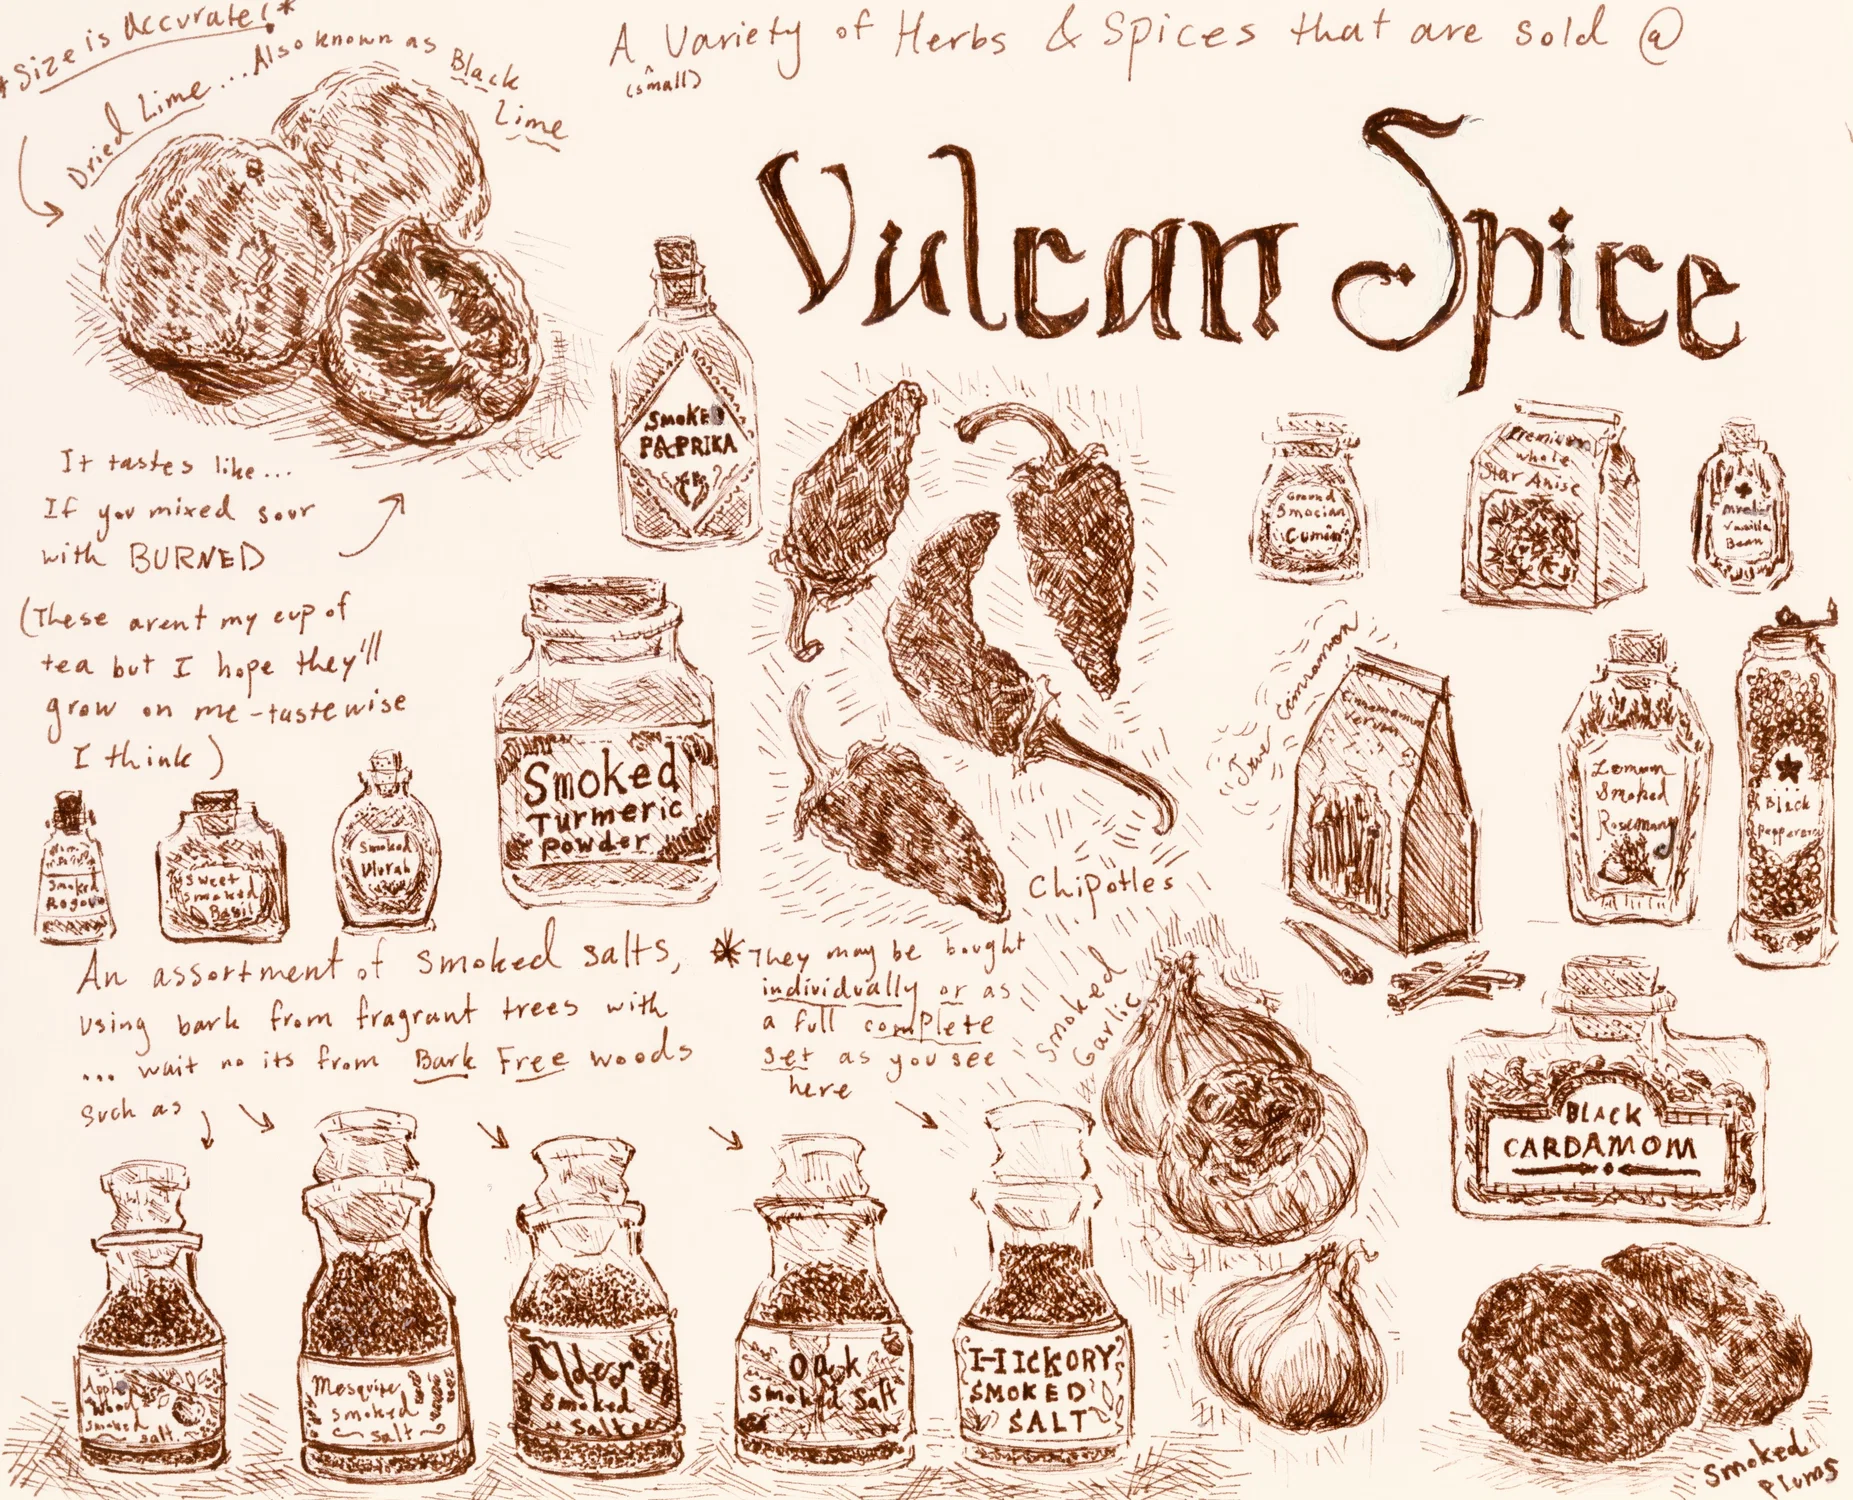 *Size is Accurate!*
Dried Lime... Also known as Black
Lime
A Variety of Herbs & Spices that are sold @
(small)
Vulcan Spice
It tastes like...
If you mixed sour
with BURNED
(These arent my cup of
tea but I hope they'll
grow on me-tastewise
I think)
SMOKED
PAPRIKA
Smoked
Turmeric
Powder
Chipotles
Ground
Cumin
Premium
whole
Star Anise
Vanilla
Bean
True Cinnamon
Verum
Lemon
Smoked
Rosemary
Black
Peppercorn
Smoked
Sweet
Smoked
Basil
Smoked
An assortment of smoked salts,
using bark from fragrant trees with
... wait no its from Bark Free woods
such as
*They may be bought
individually or as
a full complete
set as you see
here
Smoked
Garlic
BLACK
CARDAMOM
Apple
Wood
Smoked
salt
Mesquite
smoked
salt
Alder
smoked
salt
Oak
Smoked Salt
HICKORY
SMOKED
SALT
Smoked
Plums